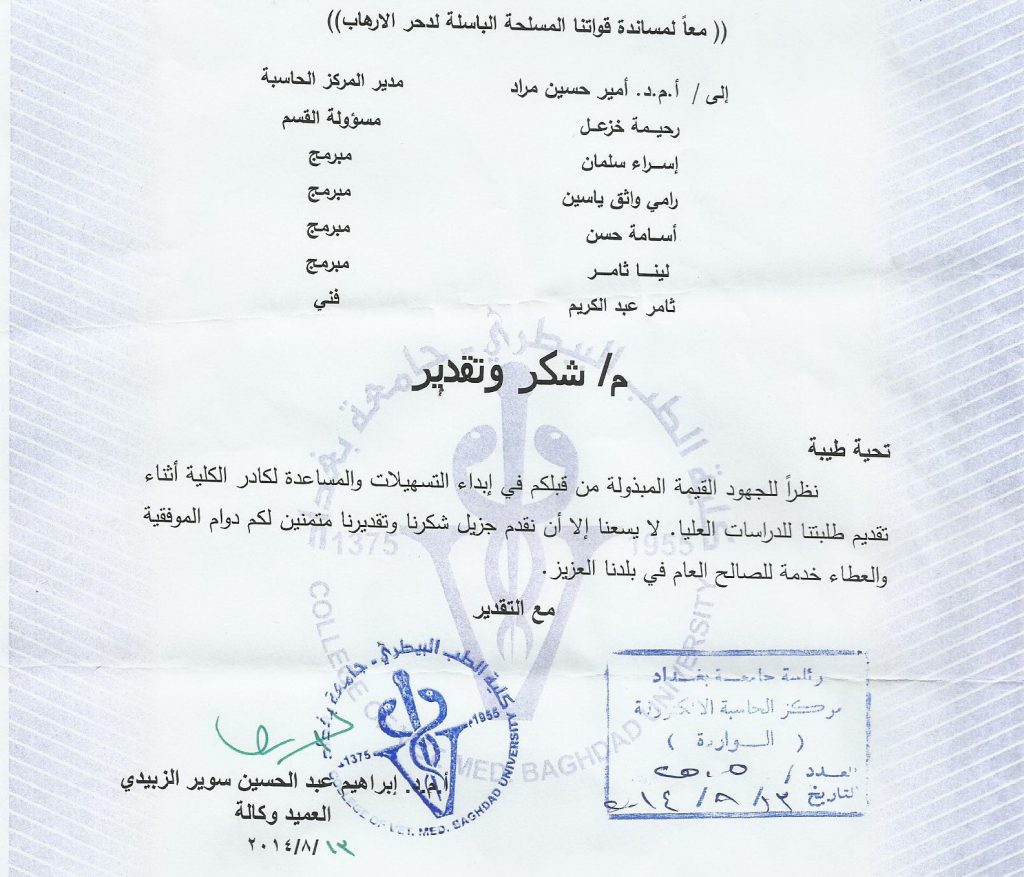 (( معاً لمساندة قواتنا المسلحة الباسلة لدحر الارهاب))
إلى / أ.م.د. أمير حسين مراد مدير المركز الحاسبة
رحيمة خزعل مسؤولة القسم
إسراء سلمان مبرمج
رامي واثق ياسين مبرمج
أسامة حسن مبرمج
لينا ثامر مبرمج
ثامر عبد الكريم فني
م/ شكر وتقدير
تحية طيبة
نظراً للجهود القيمة المبذولة من قبلكم في إبداء التسهيلات والمساعدة لكادر الكلية أثناء
تقديم طلبتنا للدراسات العليا. لا يسعنا إلا أن نقدم جزيل شكرنا وتقديرنا متمنين لكم دوام الموفقية
والعطاء خدمة للصالح العام في بلدنا العزيز.
مع التقدير
أ.م.د. إبراهيم عبد الحسين سوير الزبيدي
العميد وكالة
١٣/٨/٢٠١٤
كلية الطب البيطري - جامعة بغداد
1375 1955
COLLEGE OF VET. MED. BAGHDAD UNIVERSITY
رئاسة جامعة بغداد
مركز الحاسبة الالكترونية
( الواردة )
العدد /
التاريخ
كلية الطب البيطري - جامعة بغداد
1375 1955
COLLEGE OF VET. MED. BAGHDAD UNIVERSITY